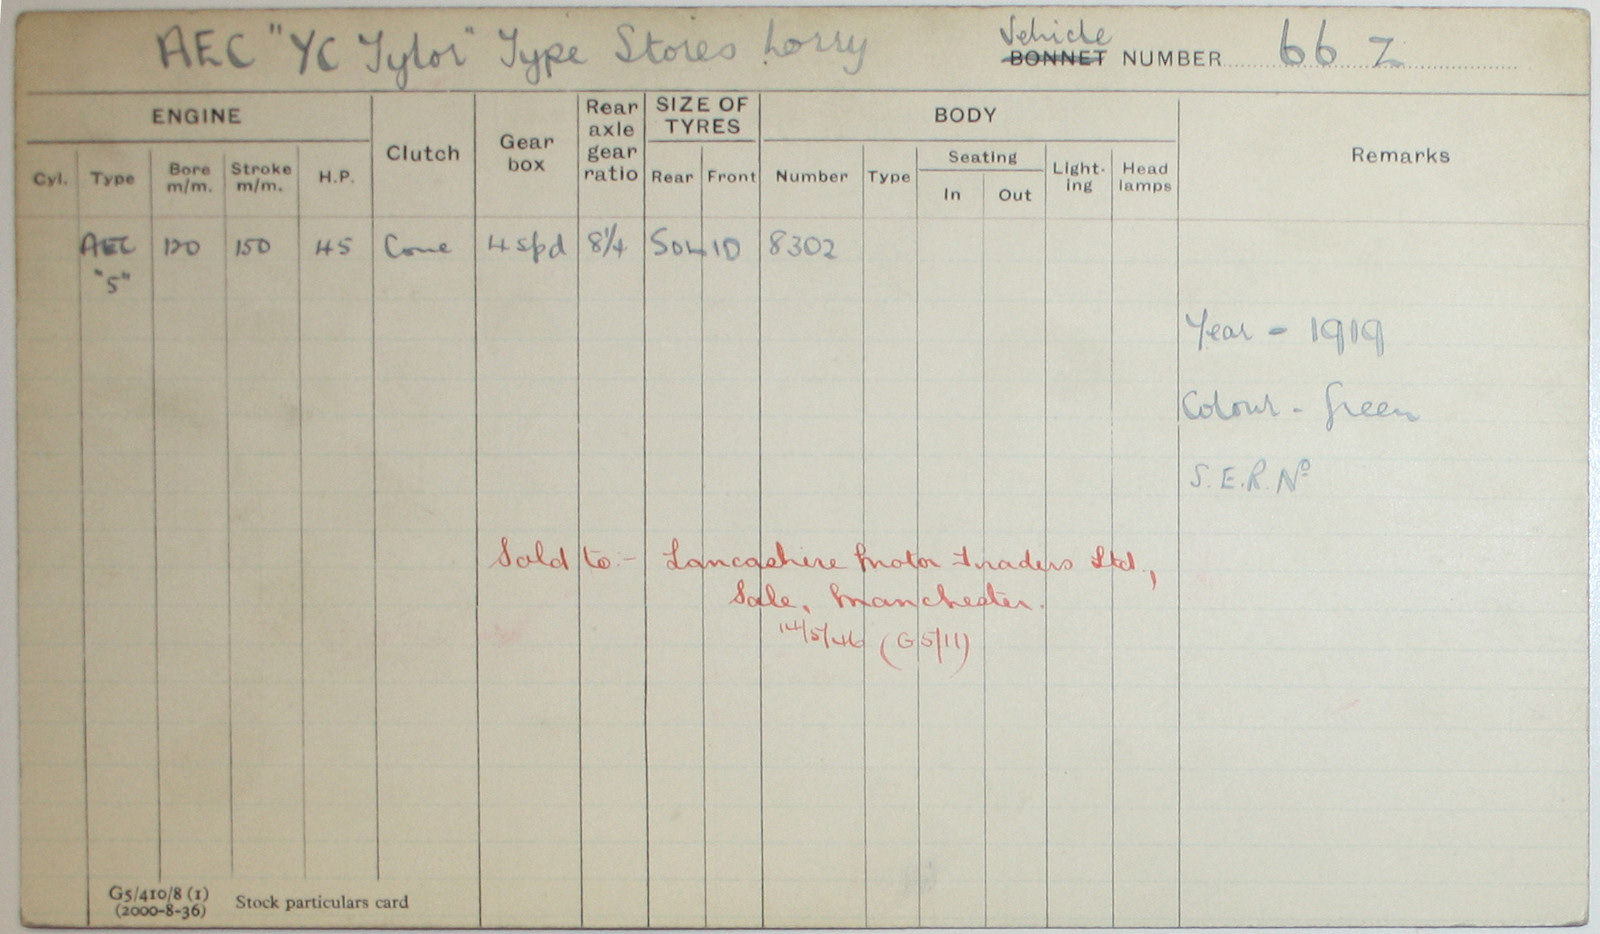 AEC "YC Tylor" Type Stores Lorry
Vehicle
BONNET NUMBER 66 Z
ENGINE
Clutch
Gear box
Rear axle gear ratio
SIZE OF TYRES
BODY
Remarks
Cyl.
Type
Bore m/m.
Stroke m/m.
H.P.
Rear
Front
Number
Type
Seating
In
Out
Light-ing
Head lamps
AEC "S" 120 150 45 Cone 4 spd 8¼ SOLID 8302
Year - 1919
Colour - Green
S.E.R. Nº
Sold to:- Lancashire Motor Traders Ltd.,
Sale, Manchester.
14/5/46 (G5/11)
G5/410/8 (1)
(2000-8-36)
Stock particulars card